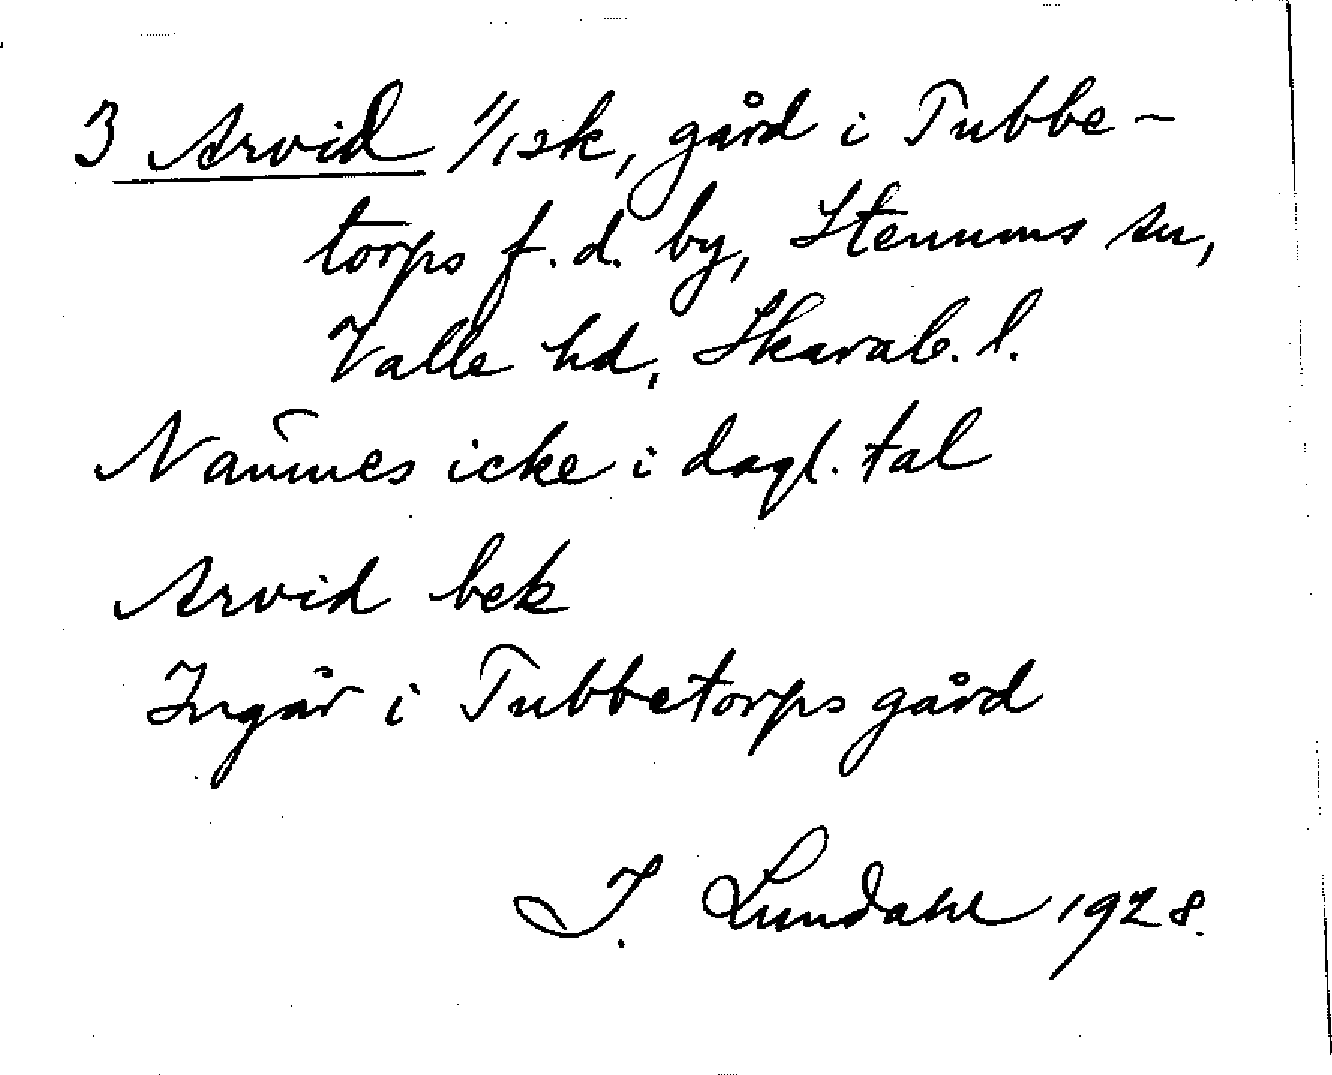 3 Arvid 1/12k, gård i Tubbe-
torps f.d. by, Stenums sn,
Valle hd, Skarab. l.
Nämnes icke i dagl. tal
Arvid bek
Ingår i Tubbetorps gård
I. Lundahl 1928.